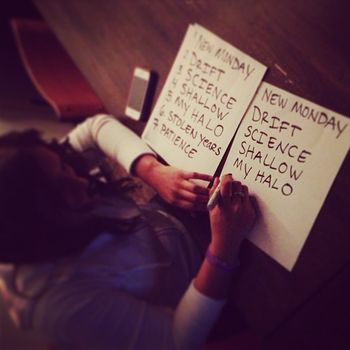 NEW MONDAY
2 DRIFT
3 SCIENCE
4 SHALLOW
5 MY HALO
6 STOLEN YEARS
7. PATIENCE
NEW MONDAY
DRIFT
SCIENCE
SHALLOW
MY HALO